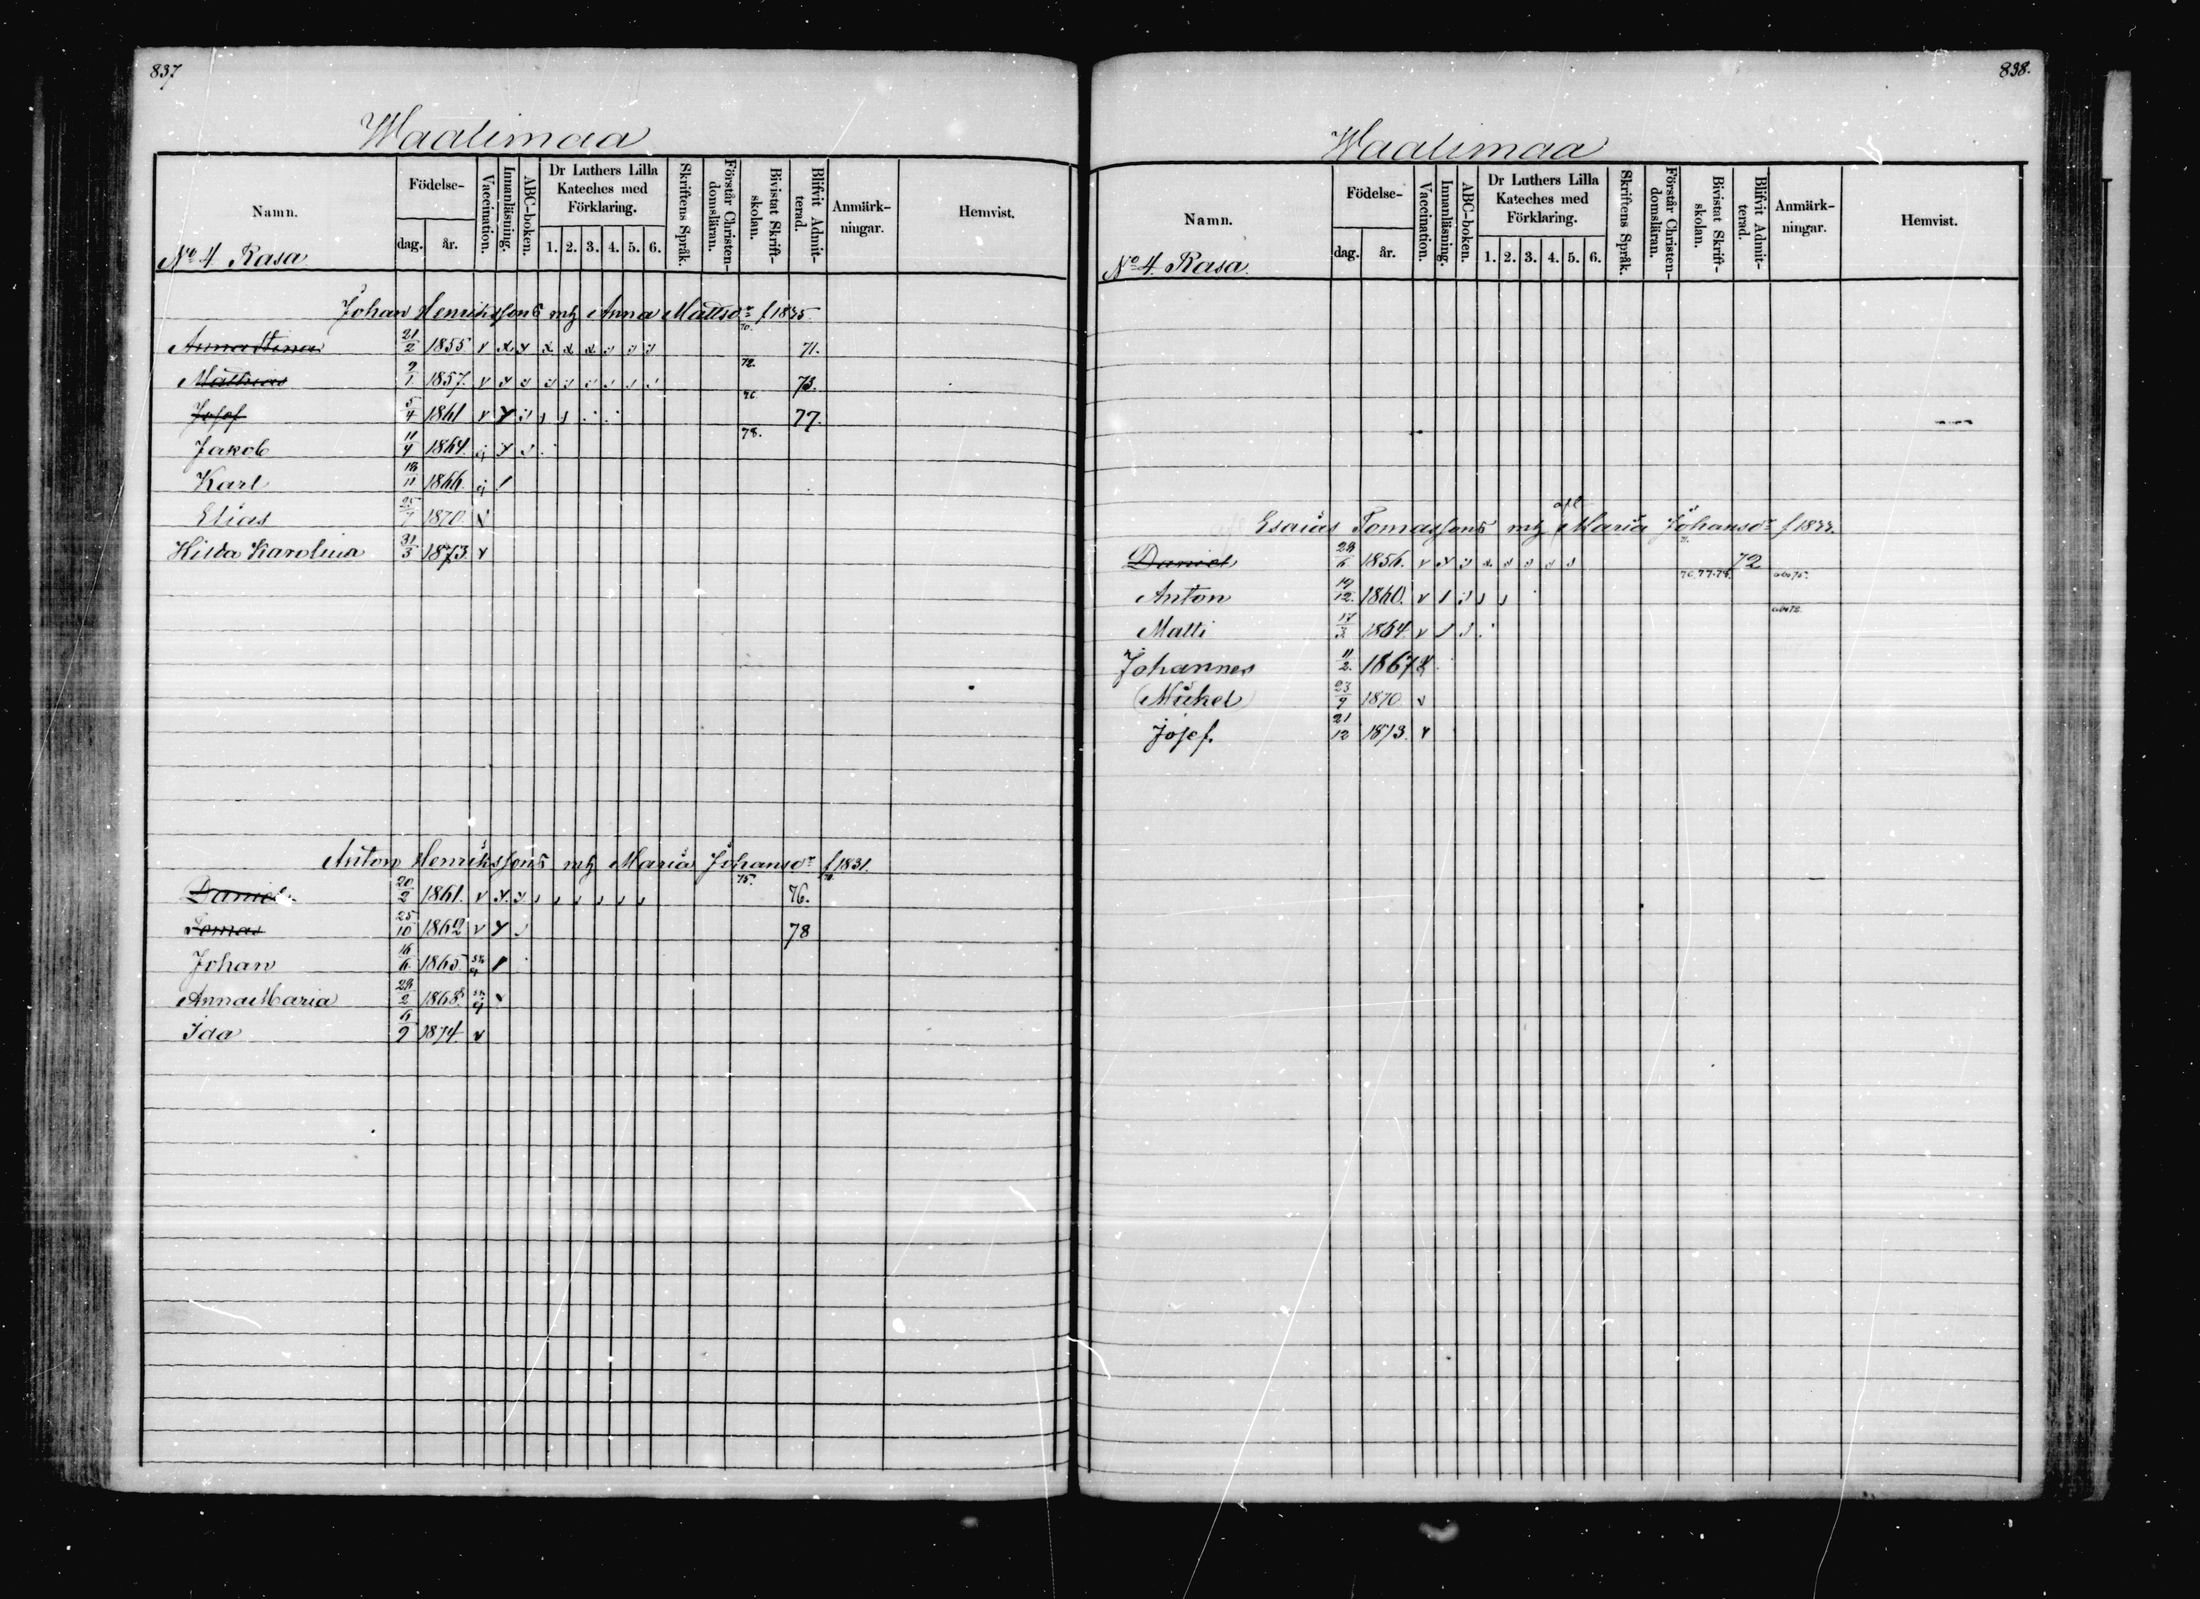 837
Waalimaa
Namn. Födelse- dag. år. Vaccination. Innanläsning. ABC-boken. Dr Luthers Lilla Kateches med Förklaring. 1. 2. 3. 4. 5. 6. Skriftens Språk. Förstår Christen-domsläran. Bivistat Skrift-skolan. Blifvit Admit-terad. Anmärk-ningar. Hemvist.
No 4 Rasa
Johan Henrikssons mh Anna Mattsdr f 1835
Anna Stina 21/2 1855 v x v x x x 70. 71.
Mathias 9/1 1857. v 72. 73.
Josef 5/4 1861 v 76. 77.
Jakob 11/4 1864. ej 78.
Karl 18/11 1866. ej
Elias 25/7 1870. v
Hilda Karolina 31/3 1873. v
Anton Henrikssons mh Maria Johansdr f 1831.
Daniel 20/2 1861. v 75. 76.
Tomas 25/10 1862 v 78
Johan 16/6 1865. ej
Anna Maria 28/2 1868. ej
Ida 6/9 1874 v
838.
Waalimaa
Namn. Födelse- dag. år. Vaccination. Innanläsning. ABC-boken. Dr Luthers Lilla Kateches med Förklaring. 1. 2. 3. 4. 5. 6. Skriftens Språk. Förstår Christen-domsläran. Bivistat Skrift-skolan. Blifvit Admit-terad. Anmärk-ningar. Hemvist.
No 4. Rasa.
afl
Esaias Tomassons mh Maria Johansdr f 1833.
Daniel 28/6 1856. v 71. 72
Anton 19/12. 1860. v 76. 77. 78.
Matti 17/3 1864. v
Johannes 11/2. 1867.
(Mikel) 23/9 1870 v
Josef. 21/12 1873. v